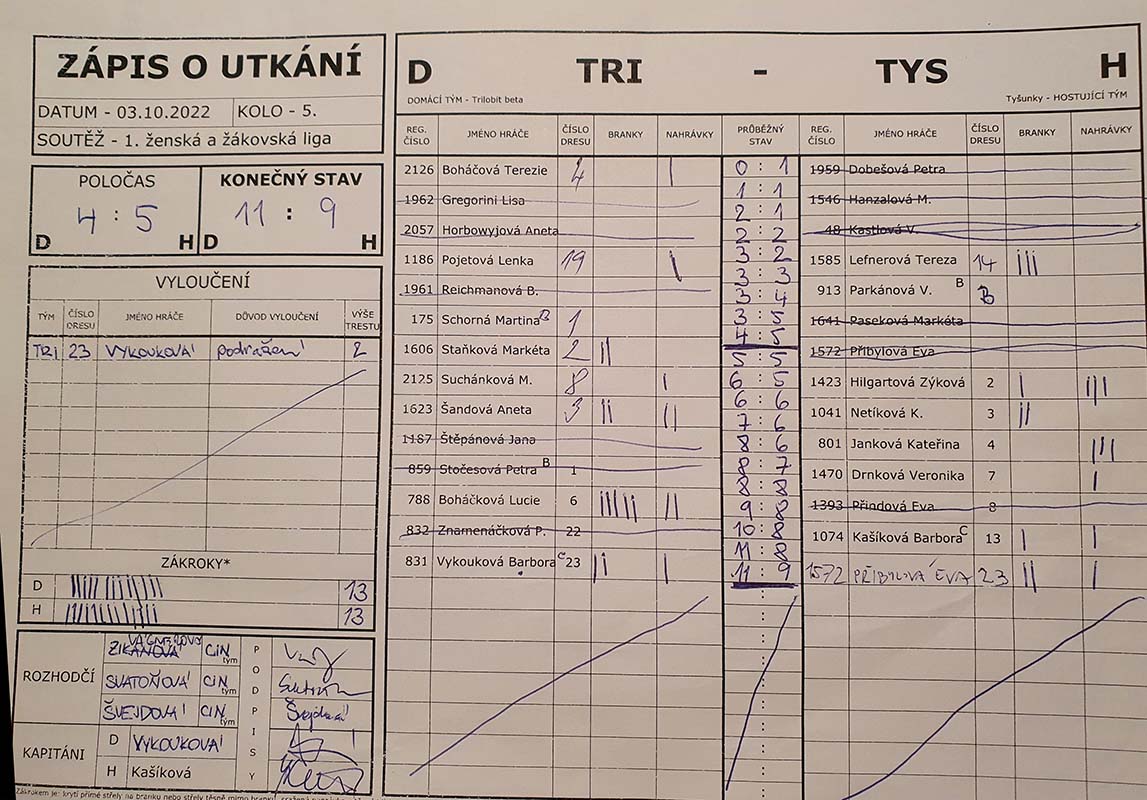 ZÁPIS O UTKÁNÍ
DATUM - 03.10.2022 KOLO - 5.
SOUTĚŽ - 1. ženská a žákovská liga
POLOČAS KONEČNÝ STAV
4 : 5 11 : 9
D H D H
VYLOUČENÍ
TÝM ČÍSLO DRESU JMÉNO HRÁČE DŮVOD VYLOUČENÍ VÝŠE TRESTU
TRI 23 VYKOUKOVÁ podražení 2
ZÁKROKY*
D 13
H 13
ROZHODČÍ
ZIKÁNOVÁ CIN tým
SVATOŇOVÁ CIN tým
ŠVEJDOVÁ CIN tým
KAPITÁNI
D VYKOUKOVÁ
H Kašíková
PODPISY
Švejdová
Zákrokem je: krytí přímé střely na branku nebo střely těsně mimo
D TRI - TYS H
DOMÁCÍ TÝM - Trilobit beta Tyšunky - HOSTUJÍCÍ TÝM
REG. ČÍSLO JMÉNO HRÁČE ČÍSLO DRESU BRANKY NAHRÁVKY PRŮBĚŽNÝ STAV REG. ČÍSLO JMÉNO HRÁČE ČÍSLO DRESU BRANKY NAHRÁVKY
2126 Boháčová Terezie 4 |
1962 Gregorini Lisa
2057 Horbowyjová Aneta
1186 Pojetová Lenka 19 |
1961 Reichmanová B.
175 Schorná Martina B 1
1606 Staňková Markéta 2 ||
2125 Suchánková M. 8 |
1623 Šandová Aneta 3 || ||
1187 Štěpánová Jana
859 Stočesová Petra B 1
788 Boháčková Lucie 6 ||||| ||
832 Znamenáčková P. 22
831 Vykouková Barbora C 23 || |
0 : 1
1 : 1
2 : 1
2 : 2
3 : 2
3 : 3
3 : 4
3 : 5
4 : 5
5 : 5
6 : 5
6 : 6
7 : 6
8 : 6
8 : 7
8 : 8
9 : 8
10 : 8
11 : 8
11 : 9
1959 Dobešová Petra
1546 Hanzalová M.
48 Kastlová V.
1585 Lefnerová Tereza 14 |||
913 Parkánová V. B B
1641 Paseková Markéta
1572 Přibylová Eva
1423 Hilgartová Zýková 2 | |||
1041 Netíková K. 3 ||
801 Janková Kateřina 4 |||
1470 Drnková Veronika 7 |
1393 Příndová Eva 8
1074 Kašíková Barbora C 13 | |
1572 PŘIBYLOVÁ EVA 23 || |